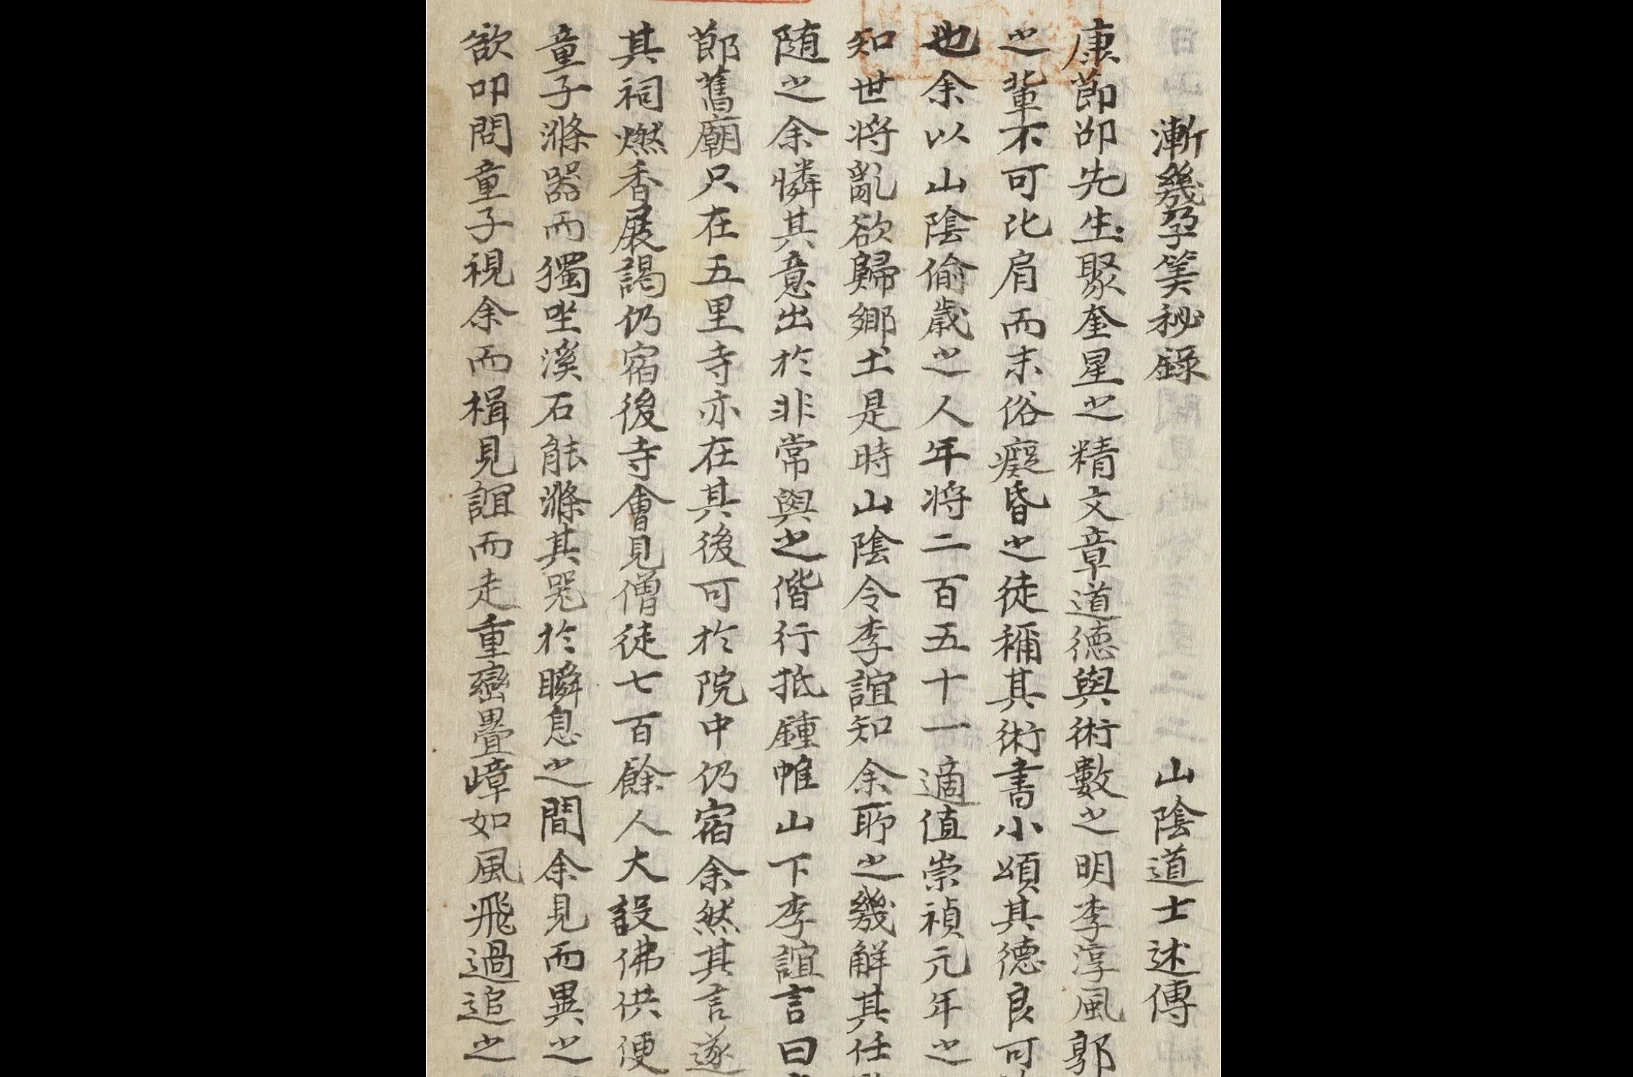 漸幾孕筭秘錄　山陰道士述傳
康節邵先生聚奎星之精文章道德與術數之明李淳風郭
之輩不可比肩而末俗癡昏之徒稱其術書小頌其德良可
也余以山陰偷歲之人年將二百五十一適值崇禎元年之
知世將亂欲歸鄉土是時山陰令李誼知余聊之幾解其任
隨之余憐其意出於非常與之偕行抵鍾帷山下李誼言曰
節舊廟只在五里寺亦在其後可於院中仍宿余然其言遂
其祠燃香展謁仍宿後寺會見僧徒七百餘人大設佛供便
童子滌器而獨坐溪石能滌其器於瞬息之間余見而異之
欲叩問童子視余而楫見誼而走重巒疊嶂如風飛過追之